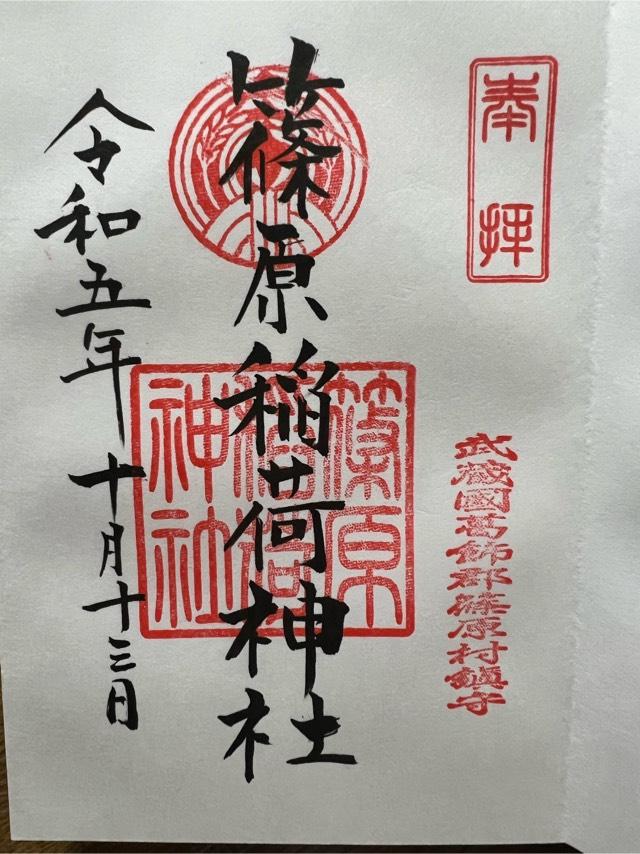 奉拝
武蔵國葛飾郡篠原村鎮守
篠原稲荷神社
篠原
稲荷
神社
令和五年十月十三日